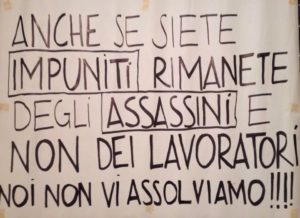 ANCHE SE SIETE
IMPUNITI RIMANETE
DEGLI ASSASSINI E
NON DEI LAVORATORI
NOI NON VI ASSOLVIAMO!!!!